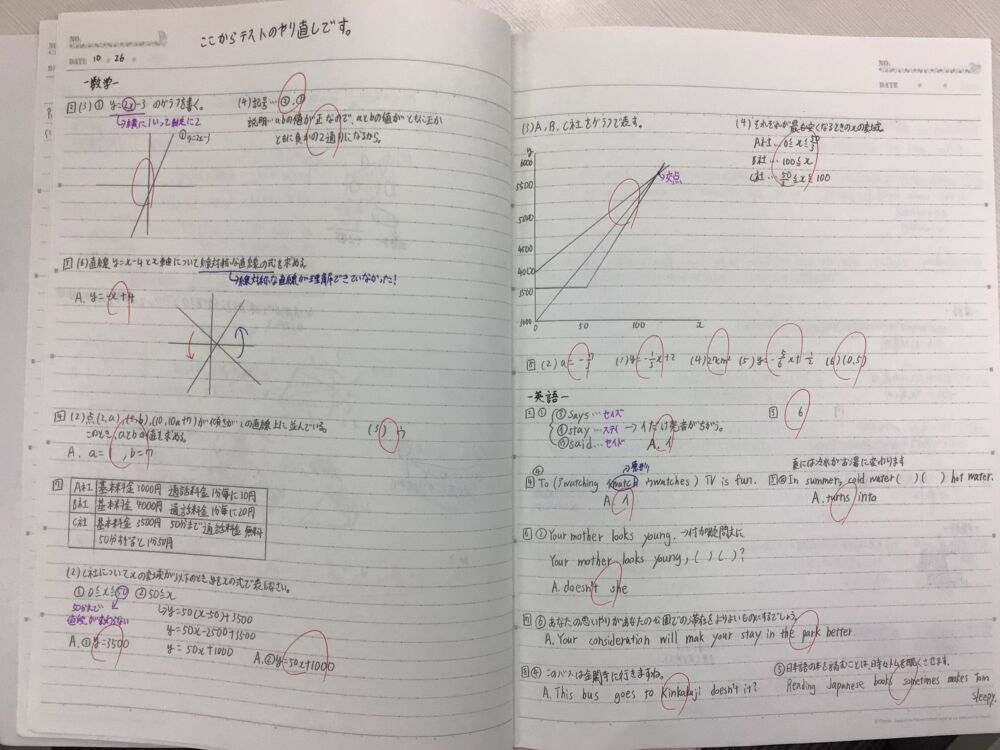 ここからテストのやり直しです。
NO.
DATE 10・26・
-数学-
(3)① y=2x-3 のグラフを書く。
→横に1いって縦に2
①y=2x-3
(4)記号…
説明…abの値が正なので、aとbの値がともに正か
ともに負かの2通りになるから。
(6)直線 y=x-4とx軸について線対称な直線の式を求める
→線対称な直線が理解できていなかった!
A. y=-x+4
(2)点(2,a),(5,b),(10,10a+7)が傾きが2の直線上に並んでいる。
このとき、aとbの値を求める。
A. a=1, b=7
(5) ウ
A社 基本料金3000円 通話料金1分毎に30円
B社 基本料金4000円 通話料金1分毎に20円
C社 基本料金3500円 50分まで通話料金 無料
50分すぎると1分50円
(2)C社についてxの変域が以下のとき、yをxの式で表しなさい。
①0≦x≦50 ②50≦x
50分まで
値段が変わらない
→y=50(x-50)+3500
y=50x-2500+3500
y=50x+1000
A.①y=3500
A.②y=50x+1000
NO.
DATE
(3)A,B,C社をグラフで表す。
y
6000
5500
5000
4500
4000
3500
3000
0
50
100
x
交点
(4)それぞれが最も安くなるときのxの変域。
A社…0≦x≦
B社…100≦x
C社…≦x≦100
(2)a=
(1)y=-x+2
(4)27cm²
(5)y=-x+
(6)(0,5)
-英語-
①
says…セイズ
stay…ステイ
said…セイド
→イだけ発音がちがう。
A. イ
6
④
To (ア watching イ watch ウ watches) TV is fun.
A. イ
夏には冷水がお湯に変わります
④In summer, cold water ( )( ) hot water.
A. turns into
6 ①Your mother looks young. →付加疑問文に
Your mother looks young, ( )( )?
A. doesn't she
⑤あなたの思いやりがあなたの公園での滞在をよりよいものにするでしょう。
A. Your consideration will mak your stay in the park better.
④このバスは金閣寺に行きますね。
A. This bus goes to Kinkakuji doesn't it?
⑤日本語の本を読むことは、時々トムを眠くさせます。
Reading Japanese books sometimes makes Tom
sleepy.